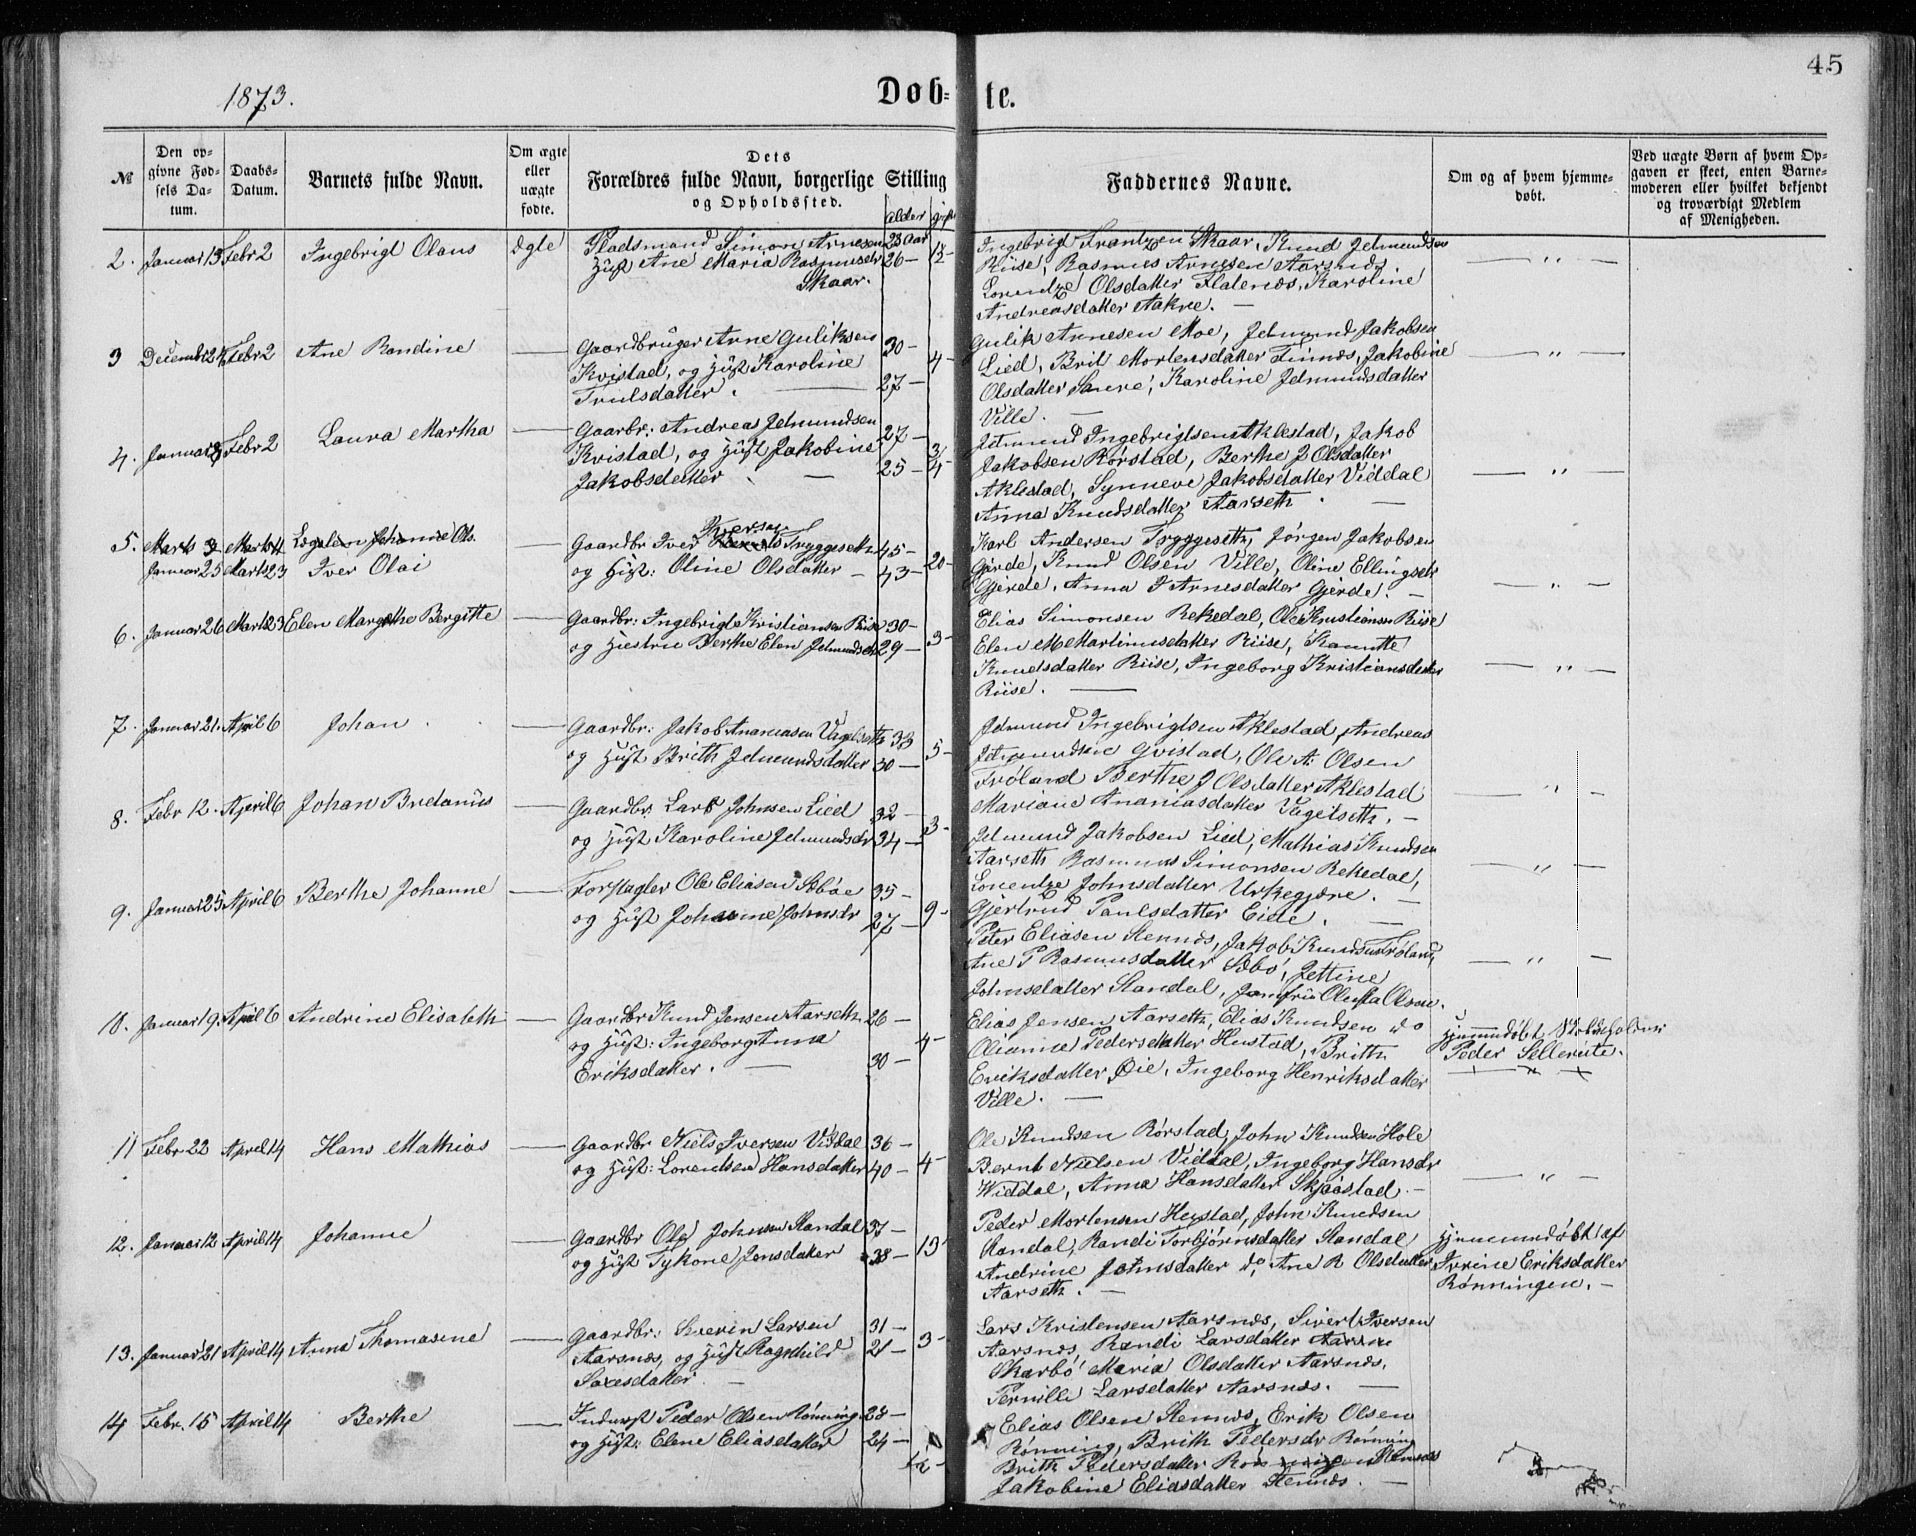 45
1873.
Døb-te.
№
Den op-
givne Fød-
sels Da-
tum.
Daabs-
Datum.
Barnets fulde Navn.
Om ægte
eller
uægte
fødte.
Dets
Forældres fulde Navn, borgerlige Stilling
og Opholdssted.
alder
gift
Faddernes Navne.
Om og af hvem hjemme-
døbt.
Ved uægte Børn af hvem Op-
gaven er skeet, enten Barne-
moderen eller hvilket bekjendt
og troværdigt Medlem
af Menigheden.
2. Januar 13 Febr 2 Ingebrigt Olaus Ægte
Pladsmand Simon Arnesen 23 Aar
Hust Ane Maria Rasmusdtr 26 –
Skaar.
Ingebrigt Frantzen Skaar, Knud Jetmundsen
Riise, Rasmus Arnesen Aarsnes
Lorentze Olsdatter Flatenes, Karoline
Andreasdatter Aakre. —
— " —
3 Decembr Febr 2 Ane Randine —
Gaardbruger Arne Guliksen 30 –
Kvistad, og Hust Karoline 4 –
Trulsdatter. — 27 –
Gulik Arnesen Moe, Jetmund Jakobsen
Lied, Brit Mortensdatter Finnes, Jakobine
Olsdatter Saure, Karoline Jetmundsdatter
Ville. —
— " —
4. Januar Febr 2 Laura Martha —
Gaardbr: Andreas Jetmundsen 27 –
Kvistad, og Hust Jakobine
Jakobsdatter — 25 –
Jetmund Ingebrigtsen Aklestad, Jakob
Jakobsen Rørstad, Berthe J Olsdatter
Aklestad, Synneve Jakobsdatter Viddal
Anna Knudsdatter Aarseth. —
— " —
5. Marts Marts Johanne Ols.
Januar 25 Marts 23 Iver Olai
Iversen
Gaardbr Iver Tryggeseth 45 –
og Hust: Oline Olsdatter – 43 – 20 –
Karl Andersen Tryggeseth, Jørgen Jakobsen
Gjerde, Knud Olsen Ville, Oline Ellingsdtr
Gjerde, Anna J Arnesdatter Gjerde. –
— " —
6. Januar 26 Marts 23 Elen Margethe Bergitte —
Gaardbr: Ingebrigt Kristiansen Riise 30 –
og Hustru Berthe Elen Jetmundsdtr 29 – 3 –
Elias Simonsen Rekedal, Ole Kristiansen Riise
Elen M Martinusdatter Riise, Kanutte
Knudsdatter Riise, Ingeborg Kristiansdatter
Riise. —
— " —
7. Januar 21. April 6 Johan —
Gaardbr: Jakob Ananiasen Vagelseth 33
og Hust Brith Jetmundsdatter 30 – 5 –
Jetmund Ingebrigtsen Aklestad, Andreas
Jetmundsen Qvistad, Ole A. Olsen
Frøland Berthe J Olsdatter Aklestad
Mariane Ananiasdatter Vagelseth. –
— " —
8. Febr 12. April 6 Johan Bredanius —
Gaardbr: Lars Johnsen Lied 32 –
og Hust Karoline Jetmundsdr 34 – 3 –
Jetmund Jakobsen Lied, Mathias Knudsen
Aarseth Rasmus Simonsen Rekedal,
Lorentze Johnsdatter Urkegjære. –
Gjertrud Paulsdatter Eide. —
— " —
9. Januar 25 April 6 Berthe Johanne —
Forpagter Ole Eliasen Sæbøe 35 –
og Hust Johanne Johnsdr 27 – 9 –
Peter Eliasen Stennes, Jakob Knudsen Frøland,
Ane P Rasmusdatter Sæbø, Jettine
Johnsdatter Standal, Jomfru Olufta Olsen.
— " —
10. Januar 19 April 6 Andrine Elisabeth —
Gaardbr Knud Jensen Aarseth 26 –
og Hust: Ingeborg Anna 4 –
Eriksdatter. — 30 –
Elias Jensen Aarseth, Elias Knudsen do
Olianne Pedersdatter Hustad, Brith
Eriksdatter Øie, Ingeborg Henriksdatter
Ville. —
Hjemmedøbt Skoleholder
Peder Sellereite.
11 Febr 22 April 14 Hans Mathias —
Gaardbr Niels Iversen Viddal 36 –
og Hust: Lorentsen Hansdatter 40 – 4 –
Ole Knudsen Rørstad, John Knudsen Hole
Bernt Nielsen Viddal, Ingeborg Hansdr
Widdal, Anna Hansdatter Skjaastad –
— " —
12. Januar 12 April 14 Johanne —
Gaardbr Ole Johnsen Standal 37 –
og Hust Tykone Jensdatter 38 – 13 –
Peder Mortensen Hustad, John Knudsen
Standal, Randi Torbjørnsdatter Standal
Andrine Johnsdatter do, Ane R Olsdatter
Aarseth. –
Hjemmedøbt af
Ivrine Eriksdatter
Rønningen. –
13. Januar 21 April 14 Anna Thomasine —
Gaardbr: Severin Larsen 31 –
Aarsnes, og Hust Ragnhild 21 – 3 –
Saxesdatter. —
Lars Kristensen Aarsnes, Sivert Iversen
Aarsnes, Randi Larsdatter Aarsne
Skarbø Maria Olsdatter Aarsnes,
Pernille Larsdatter Aarsnes. —
14 Febr. 15 April 14 Berthe —
Inderst Peder Olsen Rønning 28 –
og Hust: Elene Eliasdatter 24 –
Elias Olsen Stennes, Erik Olsen
Rønning, Brith Pedersdr Rønning
Brith Pedersdatter Stennes
Jakobine Eliasdatter Stennes. —